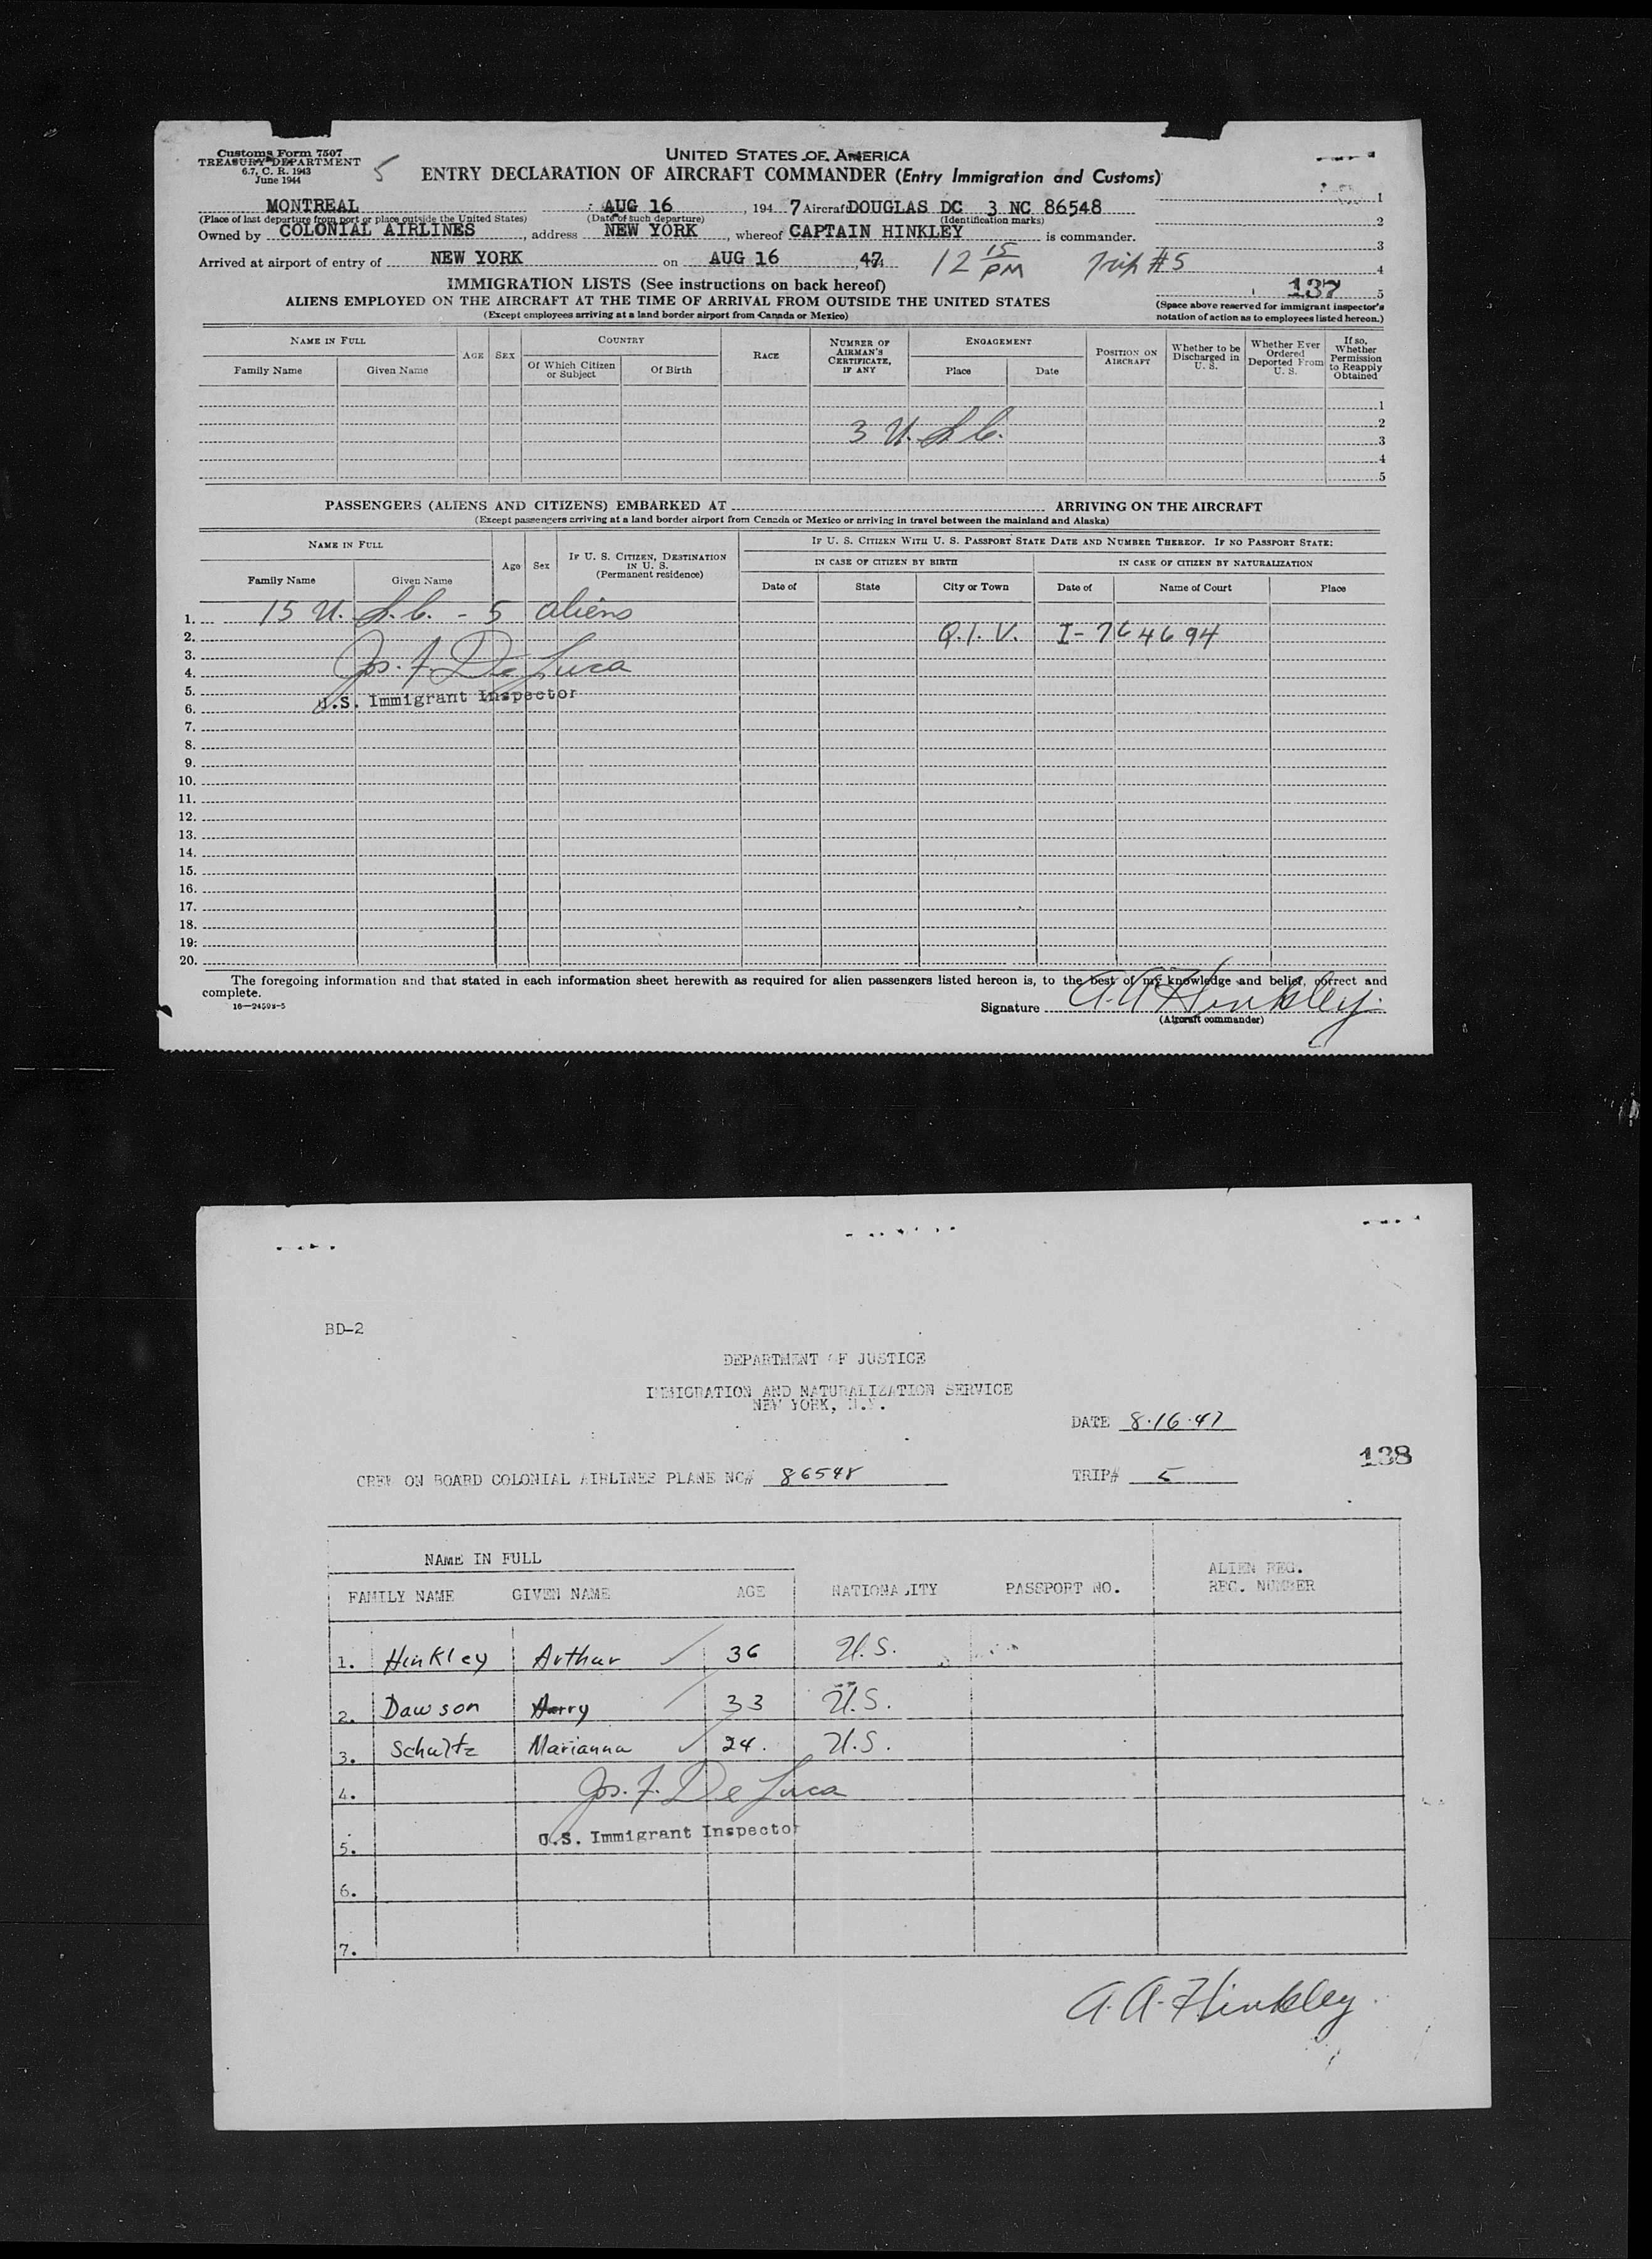 Customs Form 7507
TREASURY DEPARTMENT
6.7, C. R. 1943
June 1944
5
UNITED STATES OF AMERICA
ENTRY DECLARATION OF AIRCRAFT COMMANDER (Entry Immigration and Customs)
1
MONTREAL AUG 16, 194 7 Aircraft DOUGLAS DC 3 NC 86548
(Place of last departure from port or place outside the United States) (Date of such departure) (Identification marks)
2
Owned by COLONIAL AIRLINES, address NEW YORK, whereof CAPTAIN HINKLEY is commander.
3
Arrived at airport of entry of NEW YORK on AUG 16, 47 12 15 PM Trip #5
4
137 5
(Space above reserved for immigrant inspector's notation of action as to employees listed hereon.)
IMMIGRATION LISTS (See instructions on back hereof)
ALIENS EMPLOYED ON THE AIRCRAFT AT THE TIME OF ARRIVAL FROM OUTSIDE THE UNITED STATES
(Except employees arriving at a land border airport from Canada or Mexico)
NAME IN FULL AGE SEX COUNTRY RACE NUMBER OF AIRMAN'S CERTIFICATE, IF ANY ENGAGEMENT POSITION ON AIRCRAFT Whether to be Discharged in U. S. Whether Ever Ordered Deported From U. S. If so, Whether Permission to Reapply Obtained
Family Name Given Name Of Which Citizen or Subject Of Birth Place Date
1
2
3 U. S. C.
3
4
5
PASSENGERS (ALIENS AND CITIZENS) EMBARKED AT ARRIVING ON THE AIRCRAFT
(Except passengers arriving at a land border airport from Canada or Mexico or arriving in travel between the mainland and Alaska)
NAME IN FULL Age Sex IF U. S. CITIZEN, DESTINATION IN U. S. (Permanent residence) IF U. S. CITIZEN WITH U. S. PASSPORT STATE DATE AND NUMBER THEREOF. IF NO PASSPORT STATE:
IN CASE OF CITIZEN BY BIRTH IN CASE OF CITIZEN BY NATURALIZATION
Family Name Given Name Date of State City or Town Date of Name of Court Place
1. 15 U. S. C. - 5 aliens
2. Q.I.V. I-764694
3.
4. Jos. F. De Luca
5.
U.S. Immigrant Inspector
6.
7.
8.
9.
10.
11.
12.
13.
14.
15.
16.
17.
18.
19.
20.
The foregoing information and that stated in each information sheet herewith as required for alien passengers listed hereon is, to the best of my knowledge and belief, correct and
complete.
16—24598-5
Signature A. A. Hinkley
(Aircraft commander)
BD-2
DEPARTMENT OF JUSTICE
IMMIGRATION AND NATURALIZATION SERVICE
NEW YORK, N.Y.
DATE 8·16·47
138
CREW ON BOARD COLONIAL AIRLINES PLANE NC# 86548 TRIP# 5
NAME IN FULL
FAMILY NAME GIVEN NAME AGE NATIONALITY PASSPORT NO. ALIEN REG. REC. NUMBER
1. Hinkley Arthur 36 U.S.
2. Dawson Harry 33 U.S.
3. Schultz Marianna 24. U.S.
4. Jos. F. De Luca
U.S. Immigrant Inspector
5.
6.
7.
A. A. Hinkley.